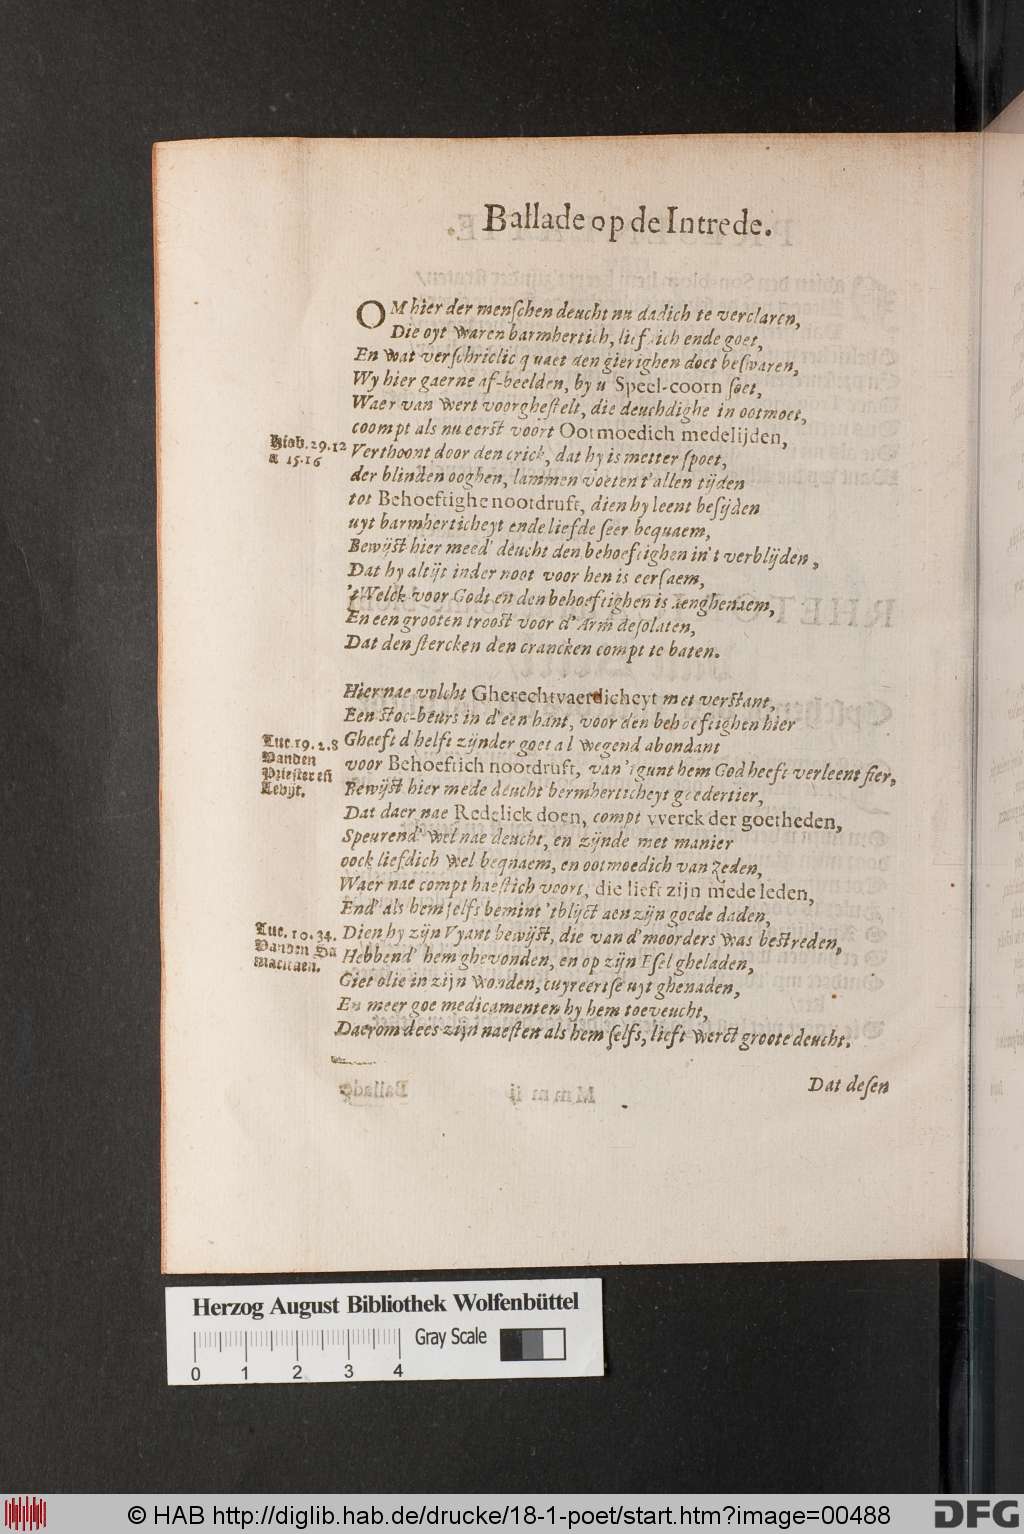 Ballade op de Intrede.
OM hier der menſchen deucht nu dadich te verclaren,
Die oyt waren barmhertich, lieflich ende goet,
En wat verſchriclic quaet den gierighen doet beſwaren,
Wy hier gaerne af-beelden, by u Speel-coorn ſoet,
Waer van wert voorgheſtelt, die deuchdighe in ootmoet,
coompt als nu eerſt voort Ootmoedich medelijden,
Hiob. 29. 12
& 15. 16
Verthoont door den crick, dat hy is metter ſpoet,
der blinden ooghen, lammen voeten t'allen tijden
tot Behoeftighe nootdruft, dien hy leent beſijden
uyt barmherticheyt ende liefde ſeer bequaem,
Bewijſt hier meed' deucht den behoeftighen in't verblijden,
Dat hy altijt inder noot voor hen is eerſaem,
't Welck voor Godt en den behoeftighen is aenghenaem,
En een grooten trooſt voor d'Arm deſolaten,
Dat den ſtercken den crancken compt te baten.
Hier nae volcht Gherechtvaerdicheyt met verſtant,
Een ſtoc-beurs in d'een hant, voor den behoeftighen hier
Luc. 19. 2. 8
Vanden
Prieſter eñ
Levijt.
Gheeft d'helft zijnder goet al wegend abondant
voor Behoeftich nootdruft, van 't gunt hem God heeft verleent fier,
Bewijſt hier mede deucht bermherticheyt goedertier,
Dat daer nae Redelick doen, compt vverck der goetheden,
Speurend' wel nae deucht, en zijnde met manier
oock liefdich wel beqnaem, en ootmoedich van zeden,
Waer nae compt haeſtich voort, die lieft zijn mede leden,
End' als hem ſelfs bemint 'tblijct aen zijn goede daden,
Luc. 10. 34.
Vanden Sa
maritaen.
Dien hy zijn Vyant bewijſt, die van d'moorders was beſtreden,
Hebbend' hem ghevonden, en op zijn Eſel gheladen,
Giet olie in zijn wonden, cuyreertſe uyt ghenaden,
En meer goe medicamenten hy hem toeveucht,
Daerom dees zijn naeſten als hem ſelfs, lieft werct groote deucht.
Dat deſen
Herzog August Bibliothek Wolfenbüttel
Gray Scale
0 1 2 3 4
© HAB http://diglib.hab.de/drucke/18-1-poet/start.htm?image=00488
DFG